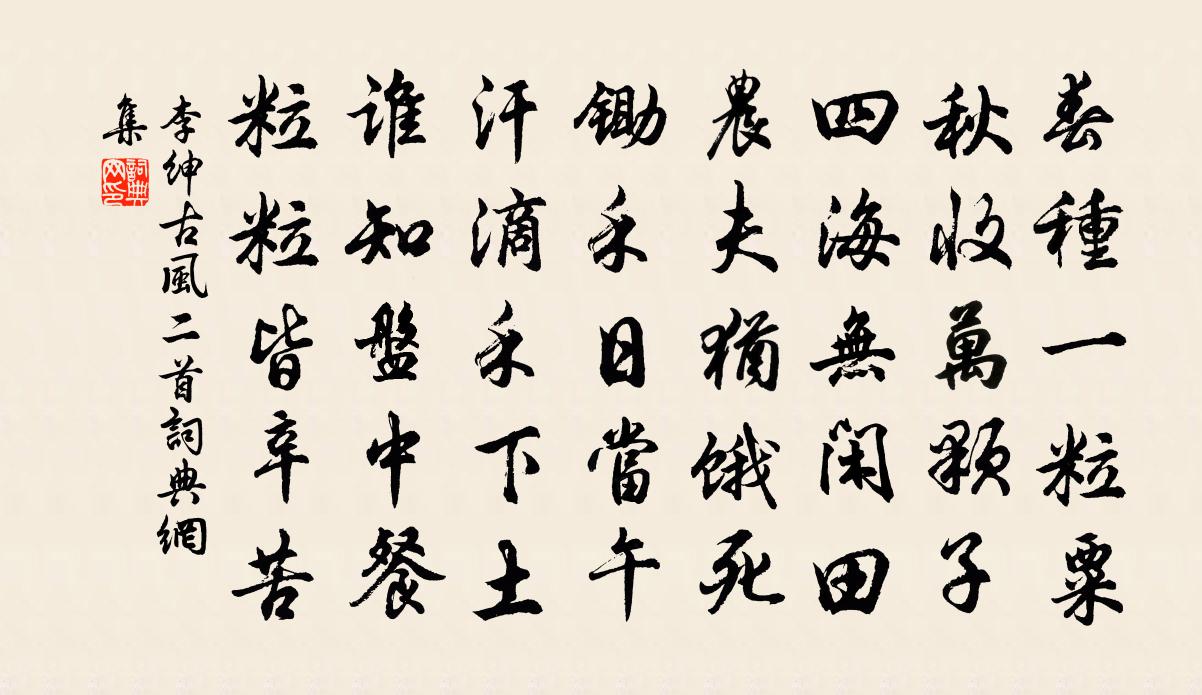 春種一粒粟
秋收萬顆子
四海無閑田
農夫猶餓死
鋤禾日當午
汗滴禾下土
誰知盤中餐
粒粒皆辛苦
李紳古風二首詞典網
集
詞典網印